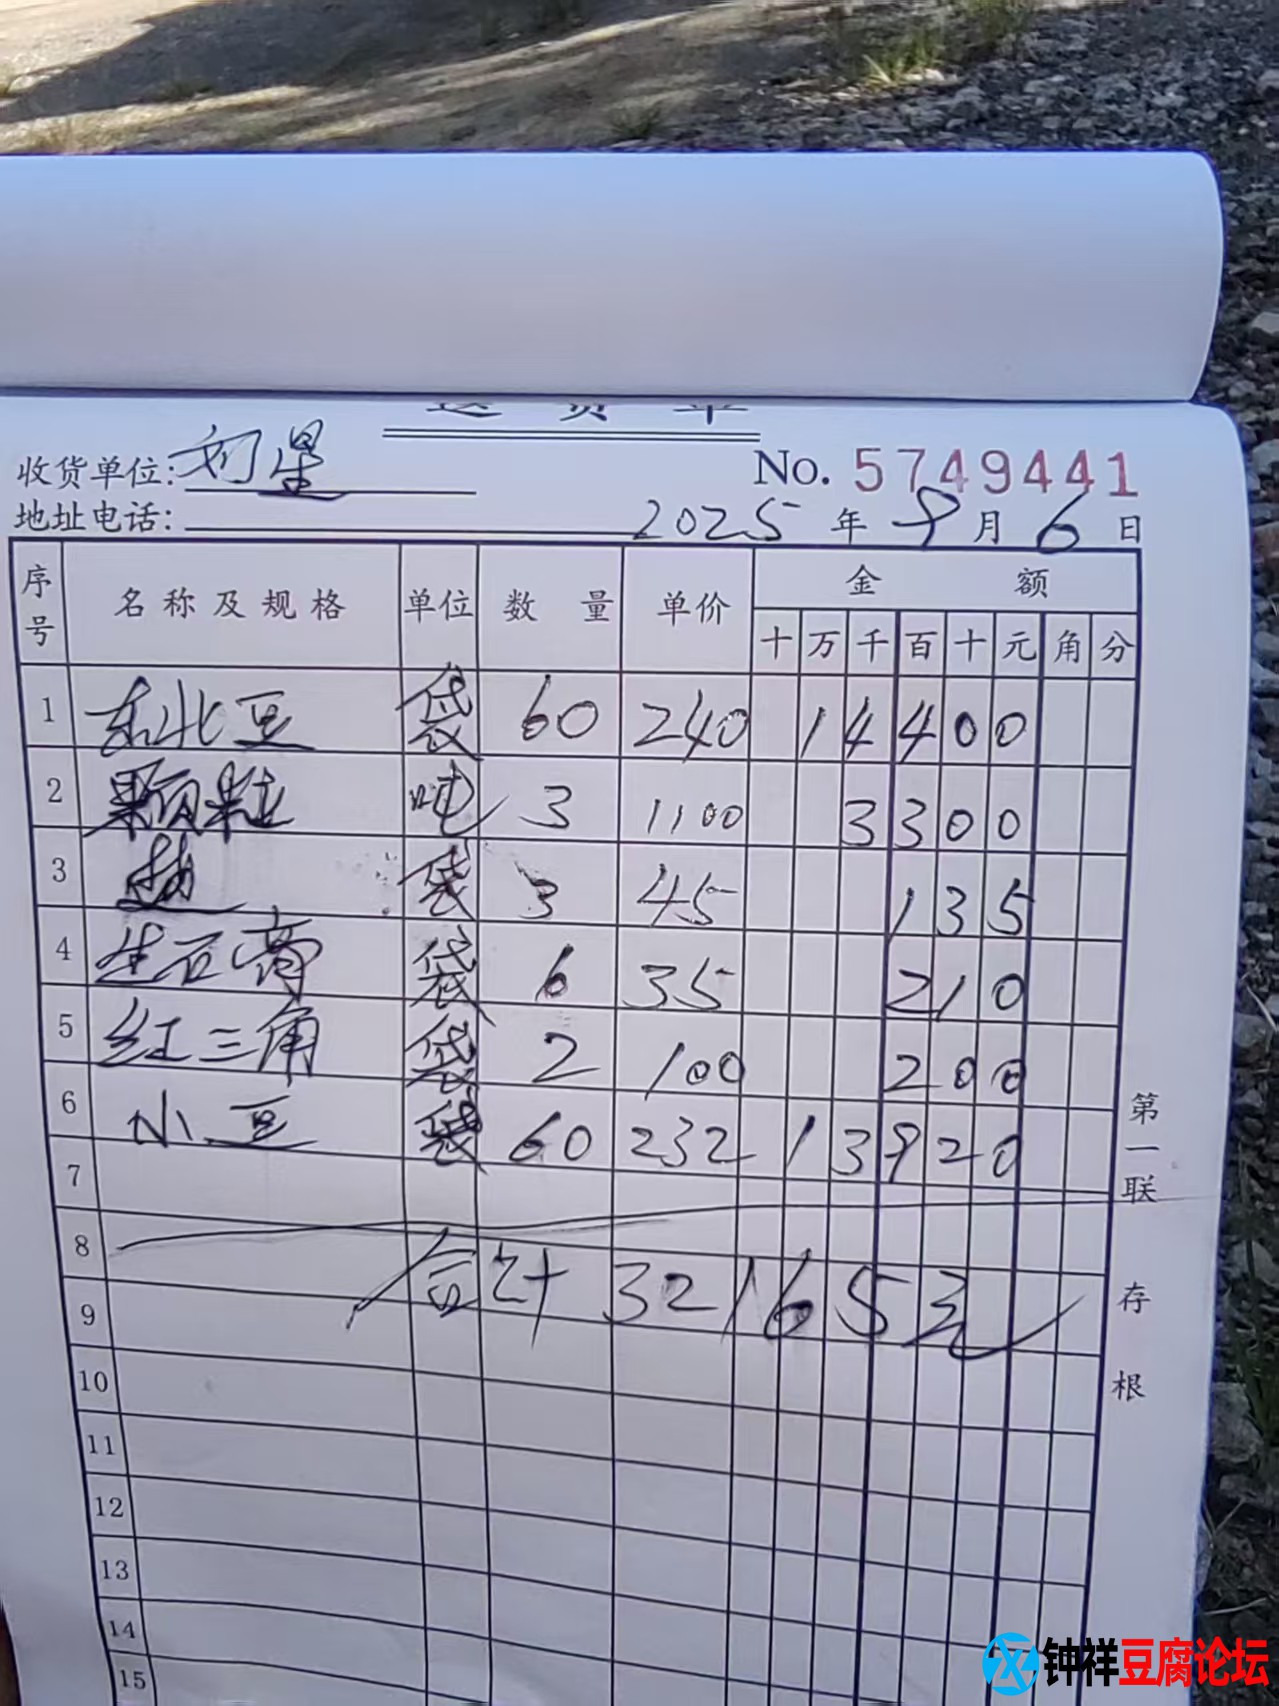 送货单
收货单位: 刘星 No. 5749441
地址电话: 2025 年 9 月 6 日
序号 名称及规格 单位 数量 单价 金额
十 万 千 百 十 元 角 分
1 东北豆 袋 60 240 1 4 4 0 0
2 颗粒 吨 3 1100 3 3 0 0
3 袋 3 45 1 3 5
4 生石膏 袋 6 35 2 1 0
5 红三角 袋 2 100 2 0 0
6 小豆 袋 60 232 1 3 9 2 0
7
8
合计 32165元
9
10
11
12
13
14
15
第一联 存根
钟祥豆腐论坛